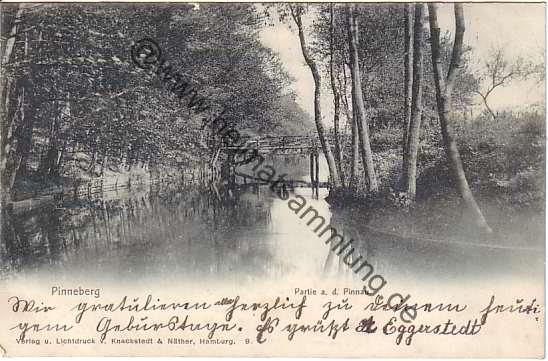 @ www.heimatsammlung.de
Pinneberg Partie a. d. Pinnau
Wir gratulieren alle herzlich zu deinem heuti-
gem Geburtstage. Es grüßt Eggerstedt
Verlag u. Lichtdruck v. Knackstedt & Näther, Hamburg. 9.